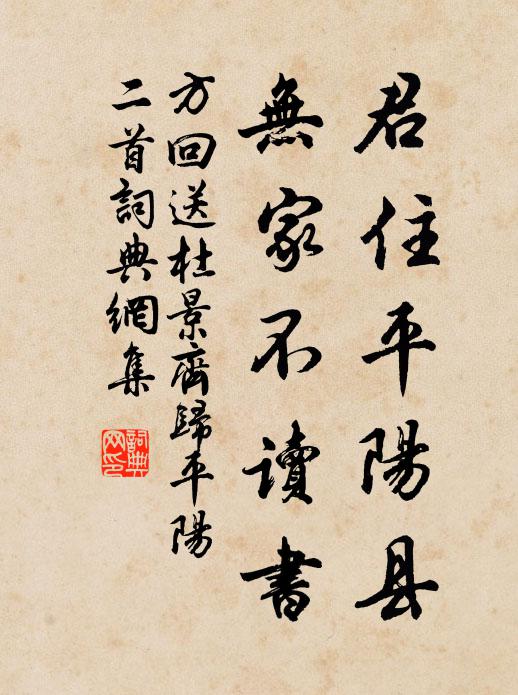 君住平陽县
無家不讀書
方回送杜景齊歸平陽
二首詞典網集
詞典
网印